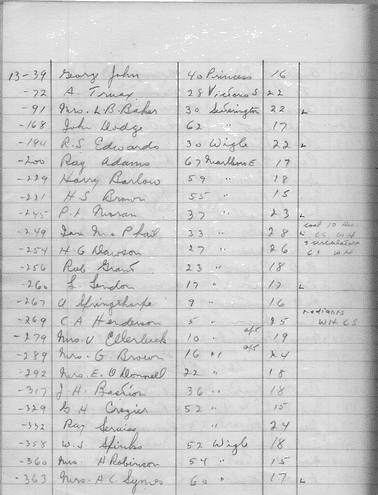 13-39 Geory John 40 Princess 16
-72 A. Truax 28 Victoria S 22
-91 Mrs. L.B. Baker 30 22 L
-168 John Dodge 62 " 17
-194 R.S Edwards 30 Wigle 22 L
-200 Ray Adams 67 Marlboro E 17
-229 Harry Barlow 59 " 18
-231 H S Brown 55 " 15
-245 P. L Moran 37 " 23 L
-249 Ian Mc Phail 33 " 28
-254 H G Dawson 27 " 26
-256 Rob Grant 23 " 18
-260 L. London 17 " 17 L
-267 A Springthorpe 9 " 16
-269 C A Henderson 5 " 25 radiants WH GS
-279 Mrs. V Ellerbeck 10 " apt 19
-289 Mrs. G Brown 16 " apt 24
-292 Mrs. E. O Donnell 22 " 18
-317 J. H. Bastion 36 " 18
-329 G H Crozier 52 " 15
-332 Ray " 24
-358 W. J Spinks 52 Wigle 18
-360 Mrs H Robinson 54 " 15
-363 Mrs. A C Symes 60 " 17 L